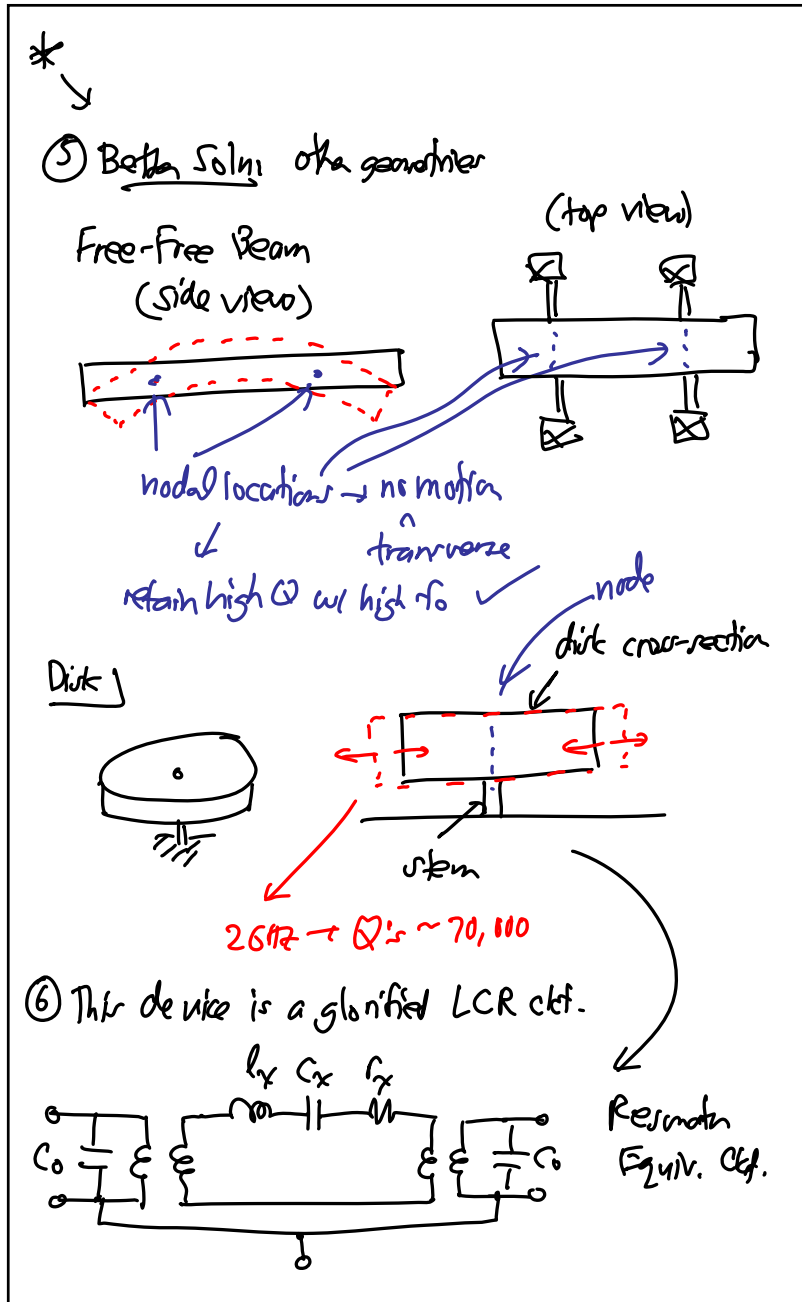 *
⑤ Better Soln: other geometries
Free-Free Beam
(side view)
(top view)
nodal locations → no motion
^
transverse
retain high Q w/ high fo ✓
node
disk cross-section
Disk
stem
2GHz → Q's ~ 70,000
⑥ This device is a glorified LCR ckt.
lx Cx rx
Co
Co
Resonator
Equiv. Ckt.